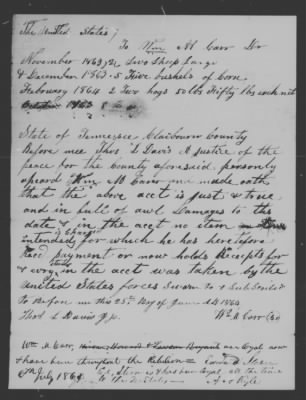 The United States;
To Wm M Carr Dr
November 1863, 2 two Sheep large
& December 1863. 5 Five bushels of Corn
February 1864 2 Two hogs 50 lbs Fifty lbs each net
October 1863
State of Tennessee Claibourn County
Before mee Thos L Davis A Justice of the
peace for the County aforesaid, personly
apeard Wm M Carr and made oath
that the above acct is Just & true
and in full of awl Damages to this
date, in the acct no item is
intended for which he has heretofore
Recd payment or now holds Receipts for
& every in the acct was taken by the
United States forces Sworn to & Subscribd
To Before me this 25th Day of June AD 1864
Thos L Davis J.p. Wm M Carr
Wm M Carr, are loyal now
& have been throughout the Rebelion
July 1864
to the